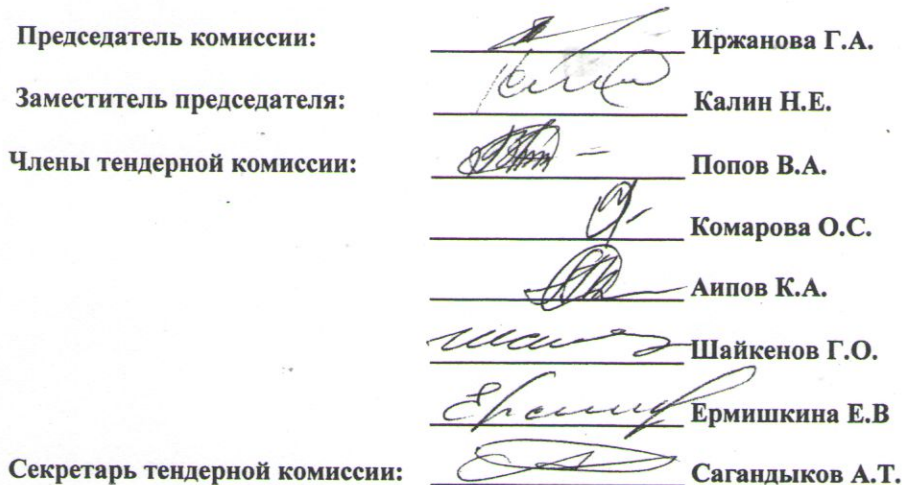 Председатель комиссии: Иржанова Г.А.
Заместитель председателя: Калин Н.Е.
Члены тендерной комиссии: Попов В.А.
Комарова О.С.
Аипов К.А.
Шайкенов Г.О.
Ермишкина Е.В
Секретарь тендерной комиссии: Сагандыков А.Т.